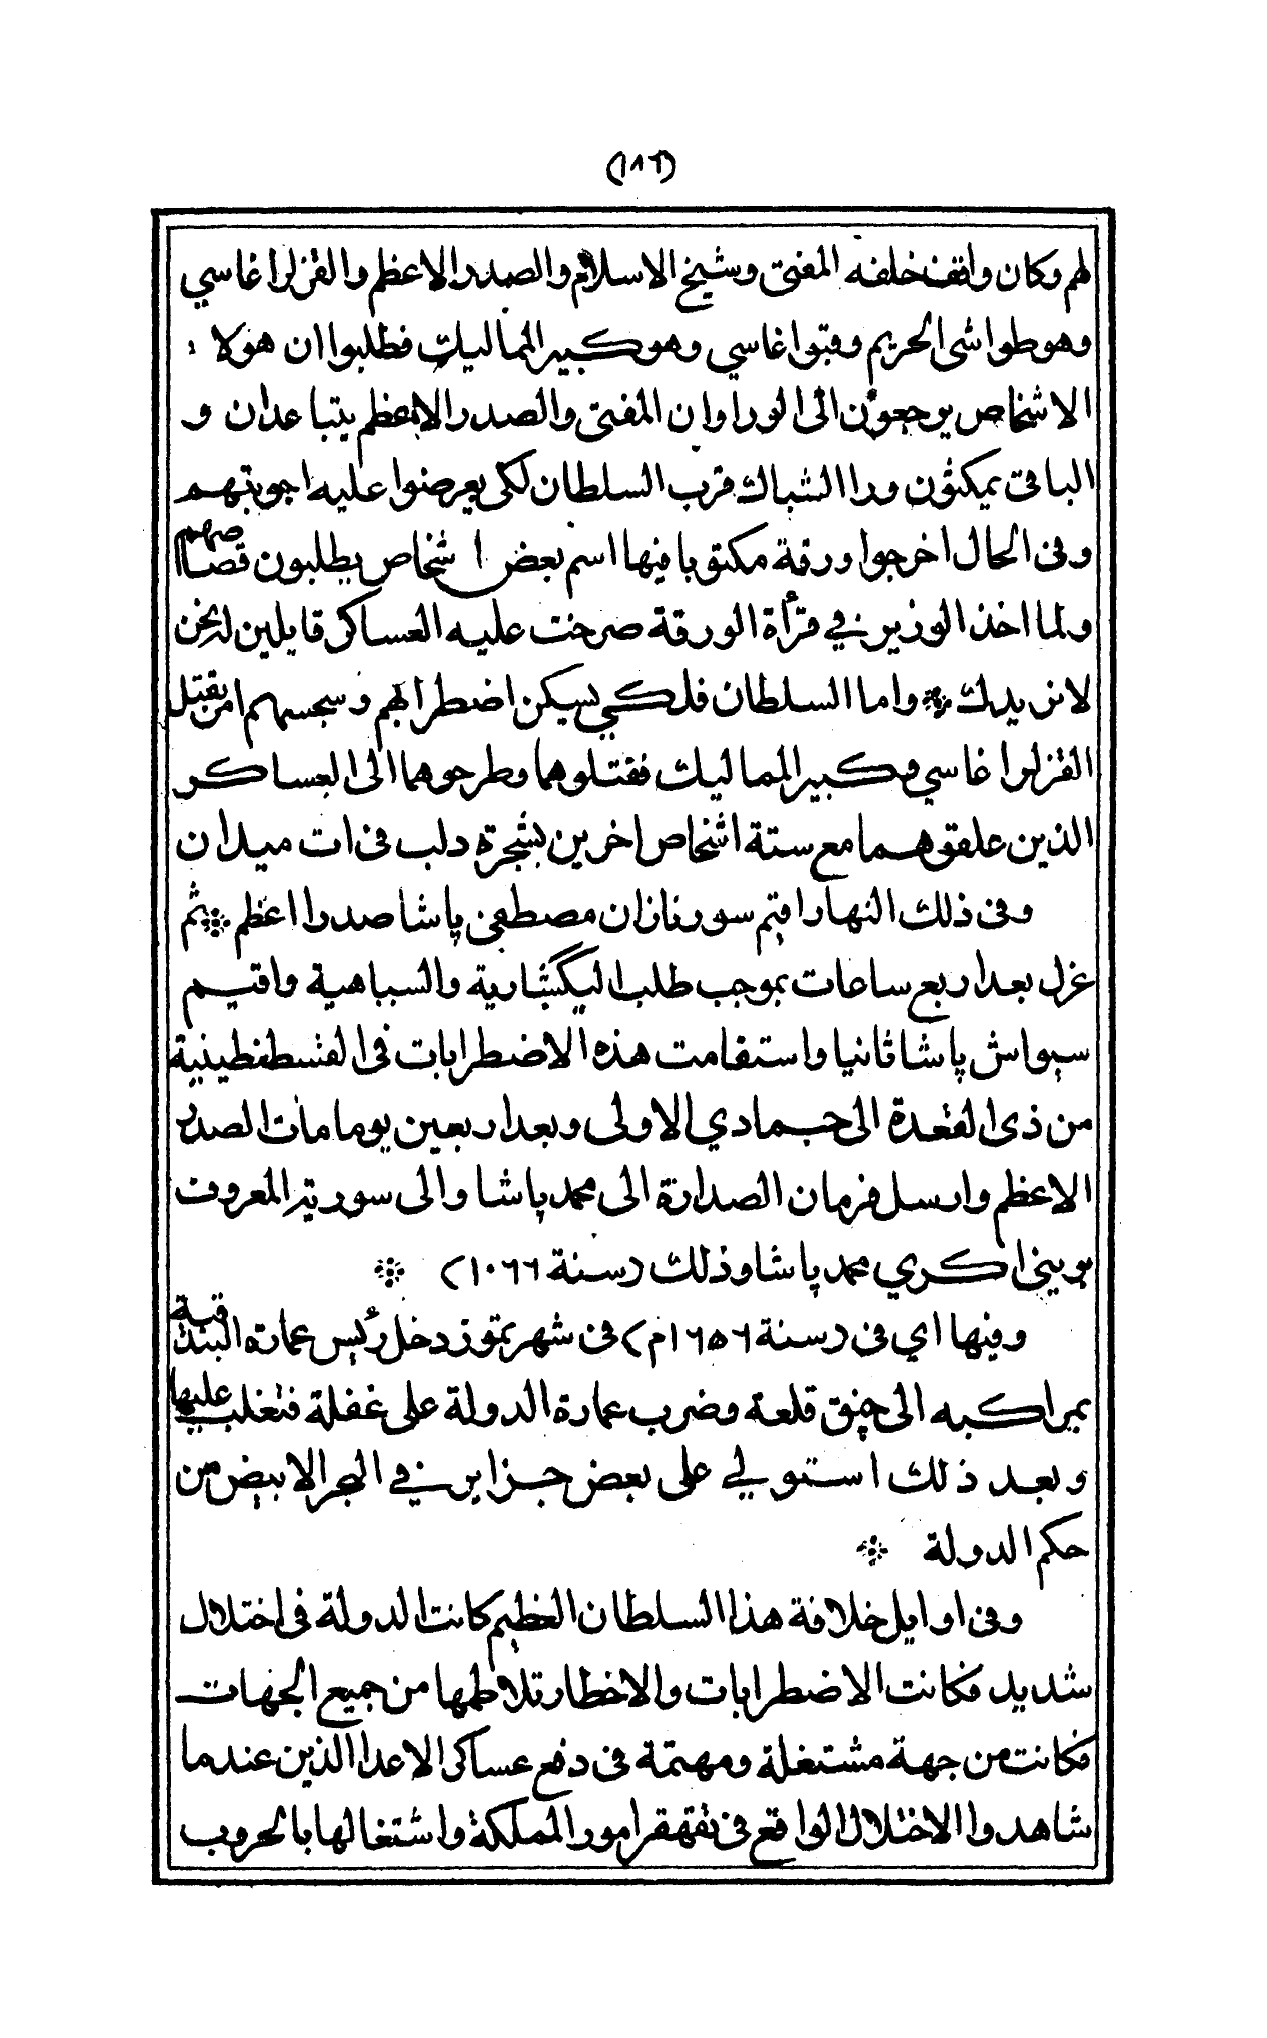 (١٨٦)
لهم وكان واقف خلفه المفتى وشيخ الاسلام والصدر الاعظم والقزلرا غاسي
وهو طواشى الحريم وقبوا غاسي وهو كبير المماليك فطلبوا ان هولا :
الاشخاص يرجعون الى الورا وان المفتى والصدر الاعظم يتباعدان و
الباقى يمكثون ورا الشباك قرب السلطان لكى يعرضوا عليه اجوبتهم
وفى الحال اخرجوا ورقة مكتوبا فيها اسم بعض اشخاص يطلبون قصاصهم
ولما اخذ الوزير في قرأة الورقة صرخت عليه العساكر قايلين له نحن
لانريدك ۞ واما السلطان فلكي يسكن اضطرابهم وسجسهم امر بقتل
القزلرا غاسي وكبير المماليك فقتلوهما وطرحوهما الى العساكر
الذين علقوهما مع ستة اشخاص اخرين بشجرة دلب فى ات ميدان
وفى ذلك النهار اقيم سورنازان مصطفى پاشا صدرا اعظم ۞ ثم
عزل بعد اربع ساعات بموجب طلب اليكڭارية والسباهية واقيم
سيواش پاشا ثانيا واستقامت هذه الاضطرابات فى القسطنطينية
من ذى القعدة الى جمادي الاولى وبعد اربعين يوما مات الصدر
الاعظم وارسل فرمان الصدارة الى محمد پاشا والى سورية المعروف
بوينى اكري محمد پاشا وذلك (سنة ١٠٦٦) ۞
وفيها اي فى (سنة ١٦٥٦م) فى شهر تموز دخل رئيس عمارة البندقية
بمراكبه الى چنق قلعة وضرب عمارة الدولة على غفلة فتغلب عليها
وبعد ذلك استولي على بعض جزاير في البحر الابيض من
حكم الدولة ۞
وفى اوايل خلافة هذا السلطان العظيم كانت الدولة فى اختلال
شديد فكانت الاضطرابات والاخطار تلاطمها من جميع الجهات
فكانت من جهة مشتغلة ومهتمة فى دفع عساكر الاعدا الذين عندما
شاهدوا الاختلال الواقع فى تقهقر امور المملكة واشتغالها بالحروب